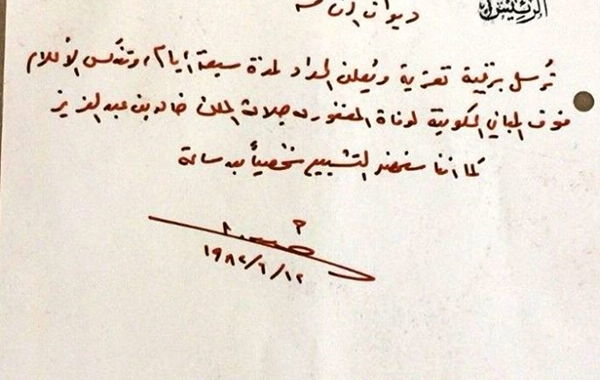 الرئيس
ديوان الرئاسة
تُرسل برقية تعزية ويُعلن الحداد لمدة سبعة أيام، وتنكس الأعلام
فوق المباني الحكومية لوفاة المغفور له جلالة الملك خالد بن عبد العزيز
كما أننا سنحضر التشييع شخصياً بعد ساعة
١٩٨٢/٦/١٢